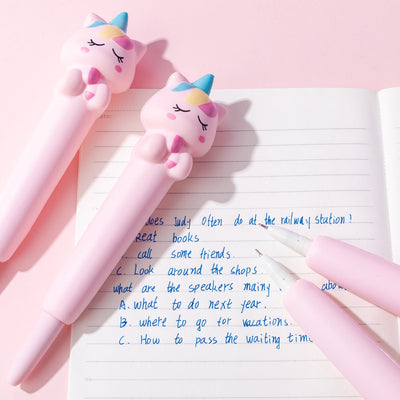 does Judy Often do at the railway station?
Reat books
call some friends.
C. Look around the shops.
what are the speakers mainy about
A. what to do next year.
B. where to go for vacations.
C. How to pass the waiting time